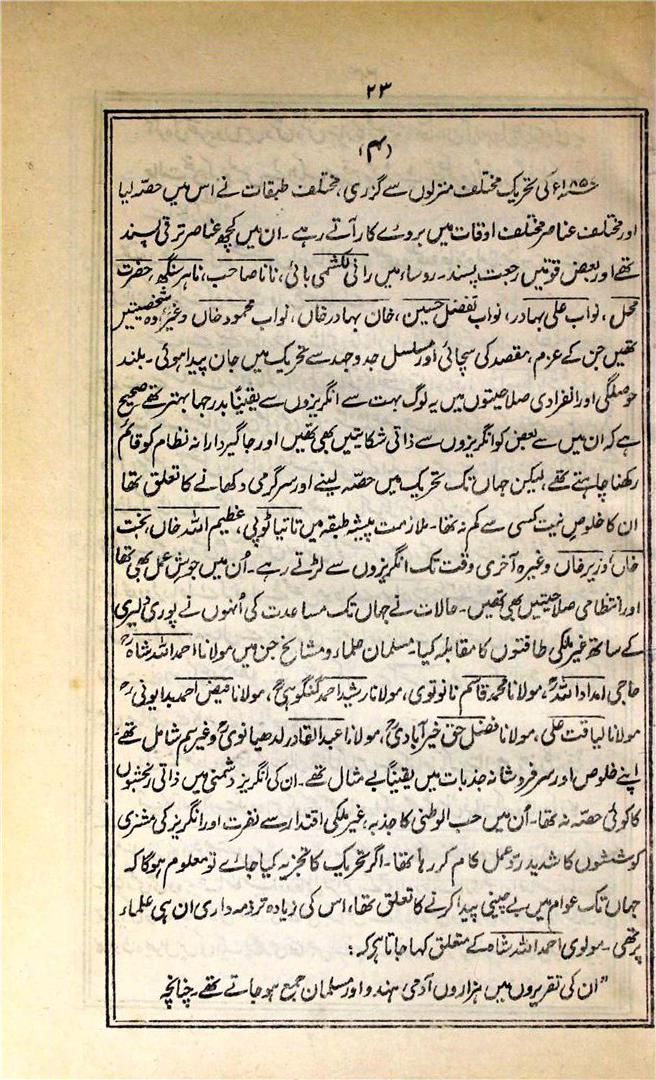 ۲۳
(۴)
۱۸۵۷ء کی تحریک مختلف منزلوں سے گزری، مختلف طبقات نے اس میں حصّہ لیا
اور مختلف عناصر مختلف اوقات میں بروئے کار آتے رہے۔ ان میں کچھ عناصر ترقی پسند
تھے اور بعض قوتیں رجعت پسند۔ روساء میں رانی لکشمی بائی، نانا صاحب، ناہر سنگھ، حضرت
محل، نواب علی بہادر، نواب تفضل حسین، خان بہادر خاں، نواب محمود خاں وغیرہ وہ شخصیتیں
تھیں جن کے عزم، مقصد کی سچائی اور مسلسل جدوجہد سے تحریک میں جان پیدا ہوئی۔ بلند
حوصلگی اور انفرادی صلاحیتوں میں یہ لوگ بہت سے انگریزوں سے یقیناً بدرجہا بہتر تھے صحیح
ہے کہ ان میں سے بعض کو انگریزوں سے ذاتی شکایتیں بھی تھیں اور جاگیردارانہ نظام کو قائم
رکھنا چاہتے تھے، لیکن جہاں تک تحریک میں حصّہ لینے اور سرگرمی دکھانے کا تعلق تھا
ان کا خلوصِ نیت کسی سے کم نہ تھا۔ ملازمت پیشہ طبقہ میں تانتیا ٹوپی، عظیم اللہ خاں، بخت
خاں، وزیر خاں وغیرہ آخری وقت تک انگریزوں سے لڑتے رہے۔ اُن میں جوشِ عمل بھی تھا
اور انتظامی صلاحیتیں بھی تھیں۔ حالات نے جہاں تک مساعدت کی اُنہوں نے پوری دلیری
کے ساتھ غیر ملکی طاقتوں کا مقابلہ کیا۔ مسلمان علماء و مشائخ جن میں مولانا احمد اللہ شاہؒ
حاجی امداد اللہؒ، مولانا محمد قاسم نانوتوی، مولانا رشید احمد گنگوہیؒ، مولانا فیض احمد بدایونیؒ
مولانا لیاقت علی، مولانا فضل حق خیرآبادیؒ، مولانا عبدالقادر لدھیانویؒ وغیرہم شامل تھے،
اپنے خلوص اور سرفروشانہ جذبات میں یقیناً بے مثال تھے۔ ان کی انگریز دشمنی میں ذاتی رنجشوں
کا کوئی حصّہ نہ تھا۔ اُن میں حب الوطنی کا جذبہ، غیر ملکی اقتدار سے نفرت اور انگریز کی مشنری
کوششوں کا شدید ردِّ عمل کام کر رہا تھا۔ اگر تحریک کا تجزیہ کیا جائے تو معلوم ہوگا کہ
جہاں تک عوام میں بے چینی پیدا کرنے کا تعلق تھا، اس کی زیادہ تر ذمہ داری ان ہی علماء
پر تھی۔ مولوی احمد اللہ شاہ کے متعلق کہا جاتا ہے کہ:
"ان کی تقریروں میں ہزاروں آدمی ہندو اور مسلمان جمع ہو جاتے تھے۔ چنانچہ